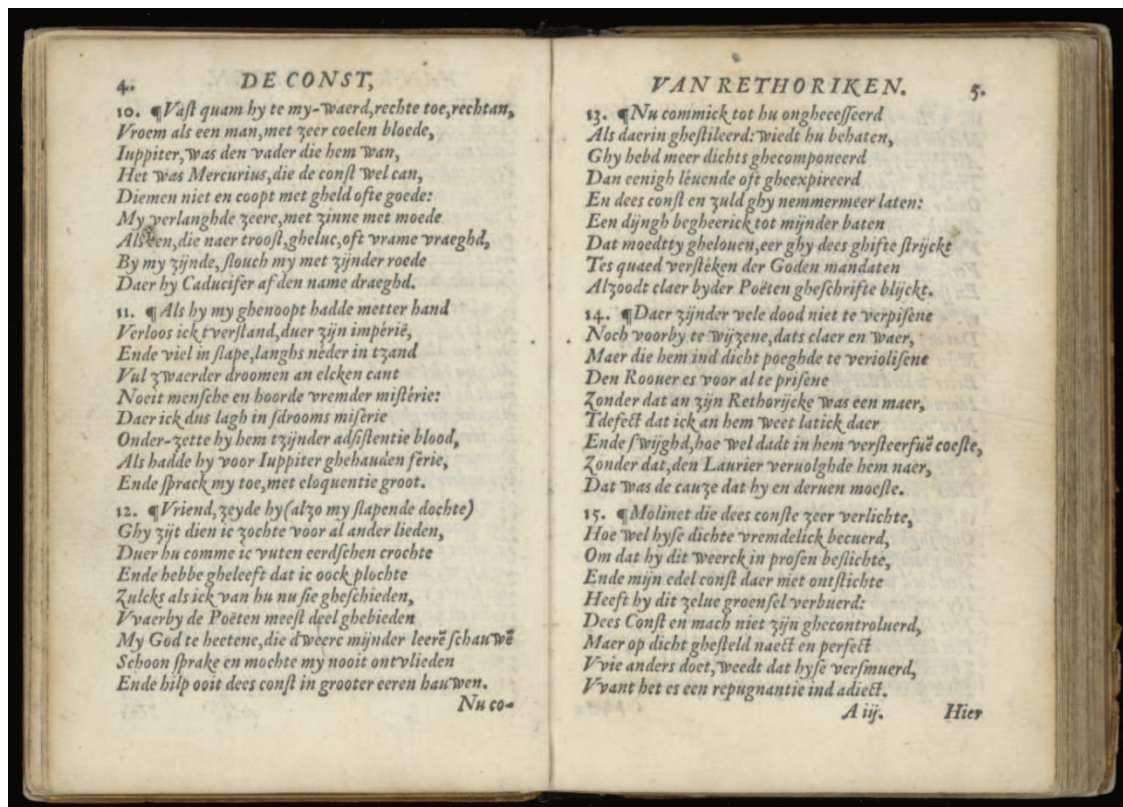 4. DE CONST,
10. ¶Vaſt quam hy te my-waerd,rechte toe,rechtan,
Vroem als een man,met zeer coelen bloede,
Iuppiter,was den vader die hem wan,
Het was Mercurius,die de conſt wel can,
Diemen niet en coopt met gheld ofte goede:
My verlanghde zeere,met zinne met moede
Als een,die naer trooſt,gheluc,oft vrame vraeghd,
By my zijnde,ſlouch my met zijnder roede
Daer hy Caducifer af den name draeghd.
11. ¶Als hy my ghenoopt hadde metter hand
Verloos ick tverſtand,duer zijn impérië,
Ende viel in ſlape,langhs neder in tzand
Vul zwaerder droomen an elcken cant
Noeit menſche en hoorde vremder miſtérie:
Daer ick dus lagh in ſdrooms miſerie
Onder-zette hy hem tzijnder adſiſtentie blood,
Als hadde hy voor Iuppiter ghehauden férie,
Ende ſprack my toe,met eloquentie groot.
12. ¶Vriend,zeyde hy(alzo my ſlapende dochte)
Ghy zijt dien ic zochte voor al ander lieden,
Duer hu comme ic vuten eerdſchen crochte
Ende hebbe gheleeft dat ic oock plochte
Zulcks als ick van hu nu ſie gheſchieden,
Vvaerby de Poëten meeſt deel ghebieden
My God te heetene,die dweerc mijnder leerē ſchauwē
Schoon ſprake en mochte my nooit ontvlieden
Ende hilp ooit dees conſt in grooter eeren hauwen.
Nu co-
VAN RETHORIKEN. 5.
13. ¶Nu commick tot hu ongheceſſeerd
Als daerin gheſtileerd:wiedt hu behaten,
Ghy hebd meer dichts ghecomponeerd
Dan eenigh léuende oft gheexpireerd
En dees conſt en zuld ghy nemmermeer laten:
Een dijngh begheerick tot mijnder baten
Dat moedtty ghelouen,eer ghy dees ghifte ſtrijckt
Tes quaed verſtéken der Goden mandaten
Alzoodt claer byder Poëten gheſchrifte blijckt.
14. ¶Daer zijnder vele dood niet te verpiſene
Noch voorby te wijzene,dats claer en waer,
Maer die hem ind dicht poeghde te verioliſene
Den Roouer es voor al te priſene
Zonder dat an zijn Rethorijcke was een maer,
Tdefect dat ick an hem weet latick daer
Ende ſwijghd,hoe wel dadt in hem verſteerfuē coeſte,
Zonder dat,den Laurier veruolghde hem naer,
Dat was de cauze dat hy en deruen moeſte.
15. ¶Molinet die dees conſte zeer verlichte,
Hoe wel hyſe dichte vremdelick becuerd,
Om dat hy dit weerck in proſen beſlichte,
Ende mijn edel conſt daer met ontſtichte
Heeft hy dit zelue groenſel verbuerd:
Dees Conſt en mach niet zijn ghecontroluerd,
Maer op dicht gheſteld naect en perfect
Vvie anders doet,weedt dat hyſe verſmuerd,
Vvant het es een repugnantie ind adiect.
A iij. Hier